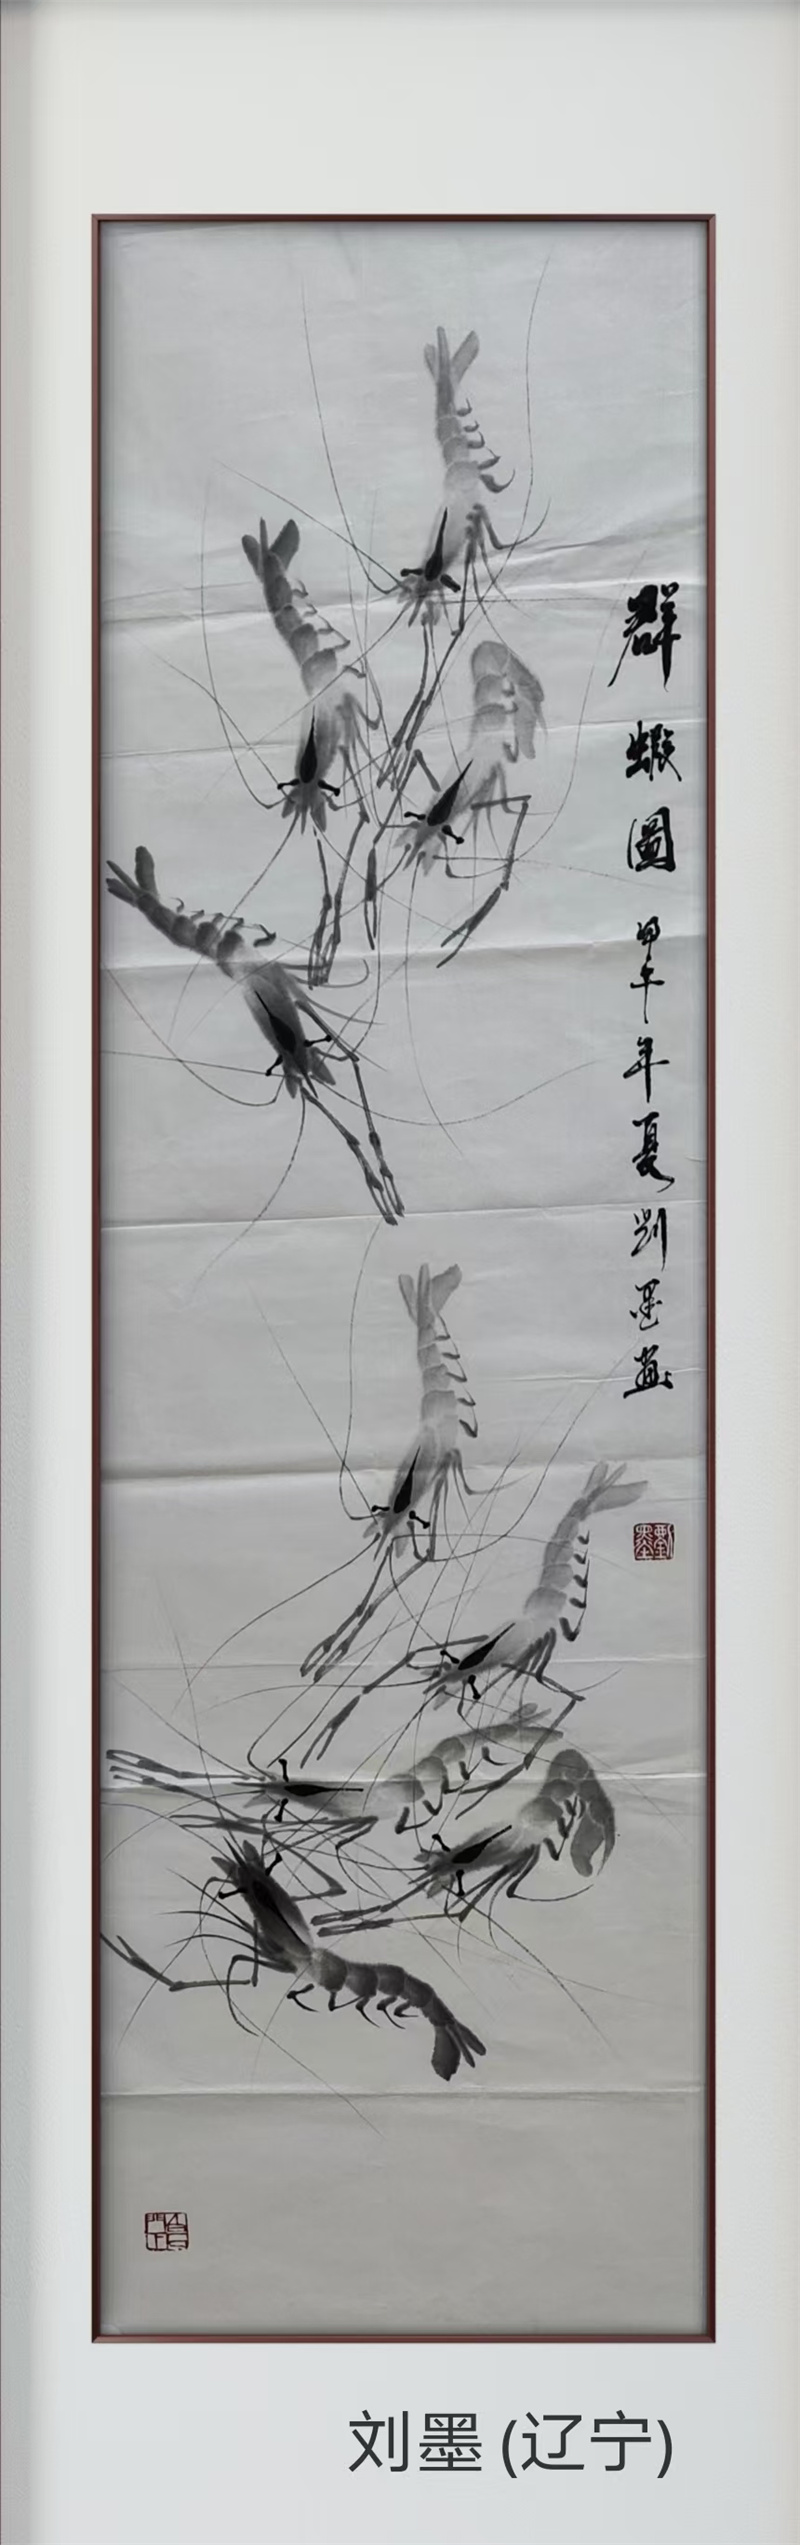 群蝦圖 甲午年夏 刘墨畫
劉墨
刘墨 (辽宁)